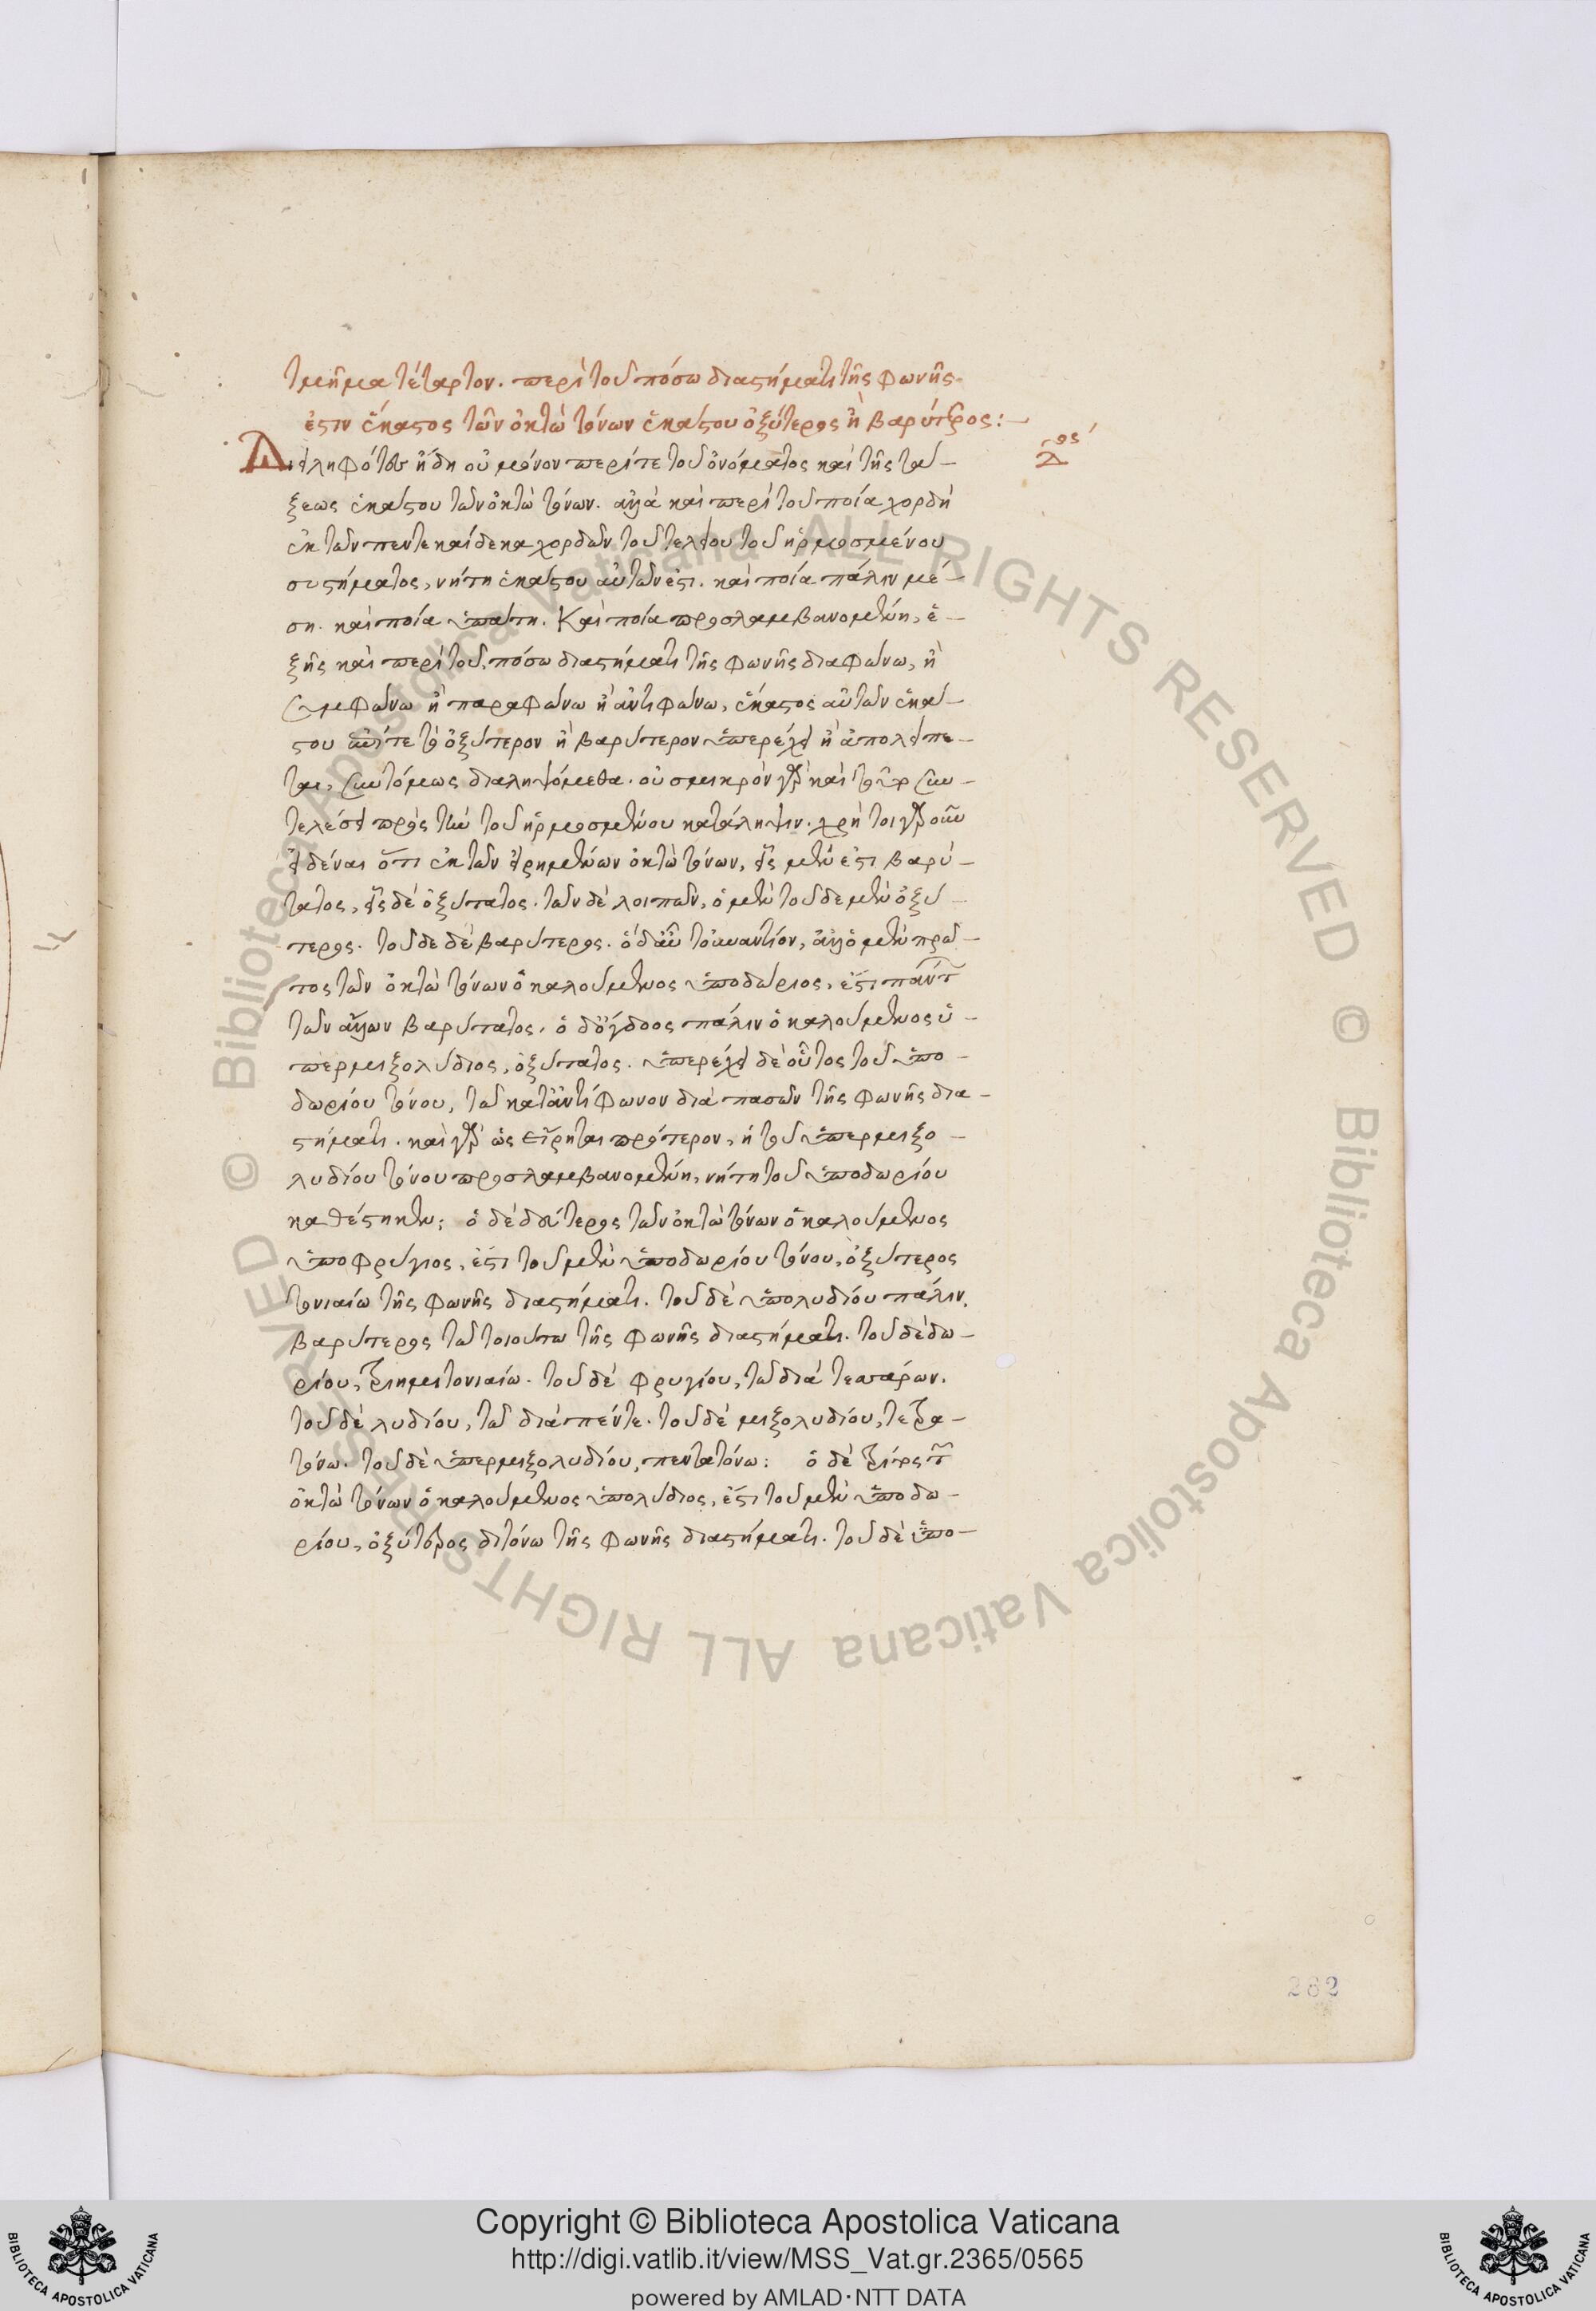 τμῆμα τέταρτον. περὶ τοῦ πόσω διαστήματι τῆς φωνῆς
ἐστιν ἕκαστος τῶν ὀκτὼ τόνων ἑκάστου ὀξύτερος ἢ βαρύτερος:
Διειληφότες ἤδη οὐ μόνον περί τε τοῦ ὀνόματος καὶ τῆς τά-
ξεως ἑκάστου τῶν ὀκτὼ τόνων. ἀλλὰ καὶ περὶ τοῦ ποία χορδὴ
ἐκ τῶν πεντεκαίδεκα χορδῶν τοῦ τελείου τοῦ ἡρμοσμένου
συστήματος, νήτη ἑκάστου αὐτῶν ἐστι. καὶ ποία πάλιν μέ-
ση. καὶ ποία ὑπάτη. Καὶ ποία προσλαμβανομένη, ἑ-
ξῆς καὶ περὶ τοῦ, πόσω διαστήματι τῆς φωνῆς διαφώνω, ἢ
συμφώνω ἢ παραφώνω ἢ ἀντιφώνω, ἕκαστος αὐτῶν ἑκά-
στου τὸ ὀξύτερον ἢ βαρύτερον ὑπερέχει ἢ ἀπολείπε-
ται, συντόμως διαληψόμεθα. οὐ σμικρὸν γὰρ καὶ συν-
τελέσει πρὸς τὴν τοῦ ἡρμοσμένου κατάληψιν. χρὴ τοιγαροῦν
εἰδέναι ὅτι ἐκ τῶν εἰρημένων ὀκτὼ τόνων, εἷς μέν ἐστι βαρύ-
τατος, εἷς δὲ ὀξύτατος. τῶν δὲ λοιπῶν, ὁ μὲν τοῦδε μὲν ὀξύ-
τερος. τοῦδε δὲ βαρύτερος. ὁ δ' αὖ τοὐναντίον, ἀλλ' ὁ μὲν πρῶ-
τος τῶν ὀκτὼ τόνων ὁ καλούμενος ὑποδώριος, ἐστι πάντων
τῶν ἄλλων βαρύτατος. ὁ δ' ὄγδοος πάλιν ὁ καλούμενος ὑ-
περμιξολύδιος, ὀξύτατος. ὑπερέχει δὲ οὗτος τοῦ ὑπο-
δωρίου τόνου, τῶ κατ' ἀντίφωνον διὰ πασῶν τῆς φωνῆς δια-
στήματι. καὶ γὰρ ὡς εἴρηται πρότερον, ἡ τοῦ ὑπερμιξο-
λυδίου τόνου προσλαμβανομένη, νήτη τοῦ ὑποδωρίου
καθέστηκεν: ὁ δὲ δεύτερος τῶν ὀκτὼ τόνων ὁ καλούμενος
ὑποφρύγιος, ἐστι τοῦ μὲν ὑποδωρίου τόνου, ὀξύτερος
τονιαίω τῆς φωνῆς διαστήματι. τοῦ δὲ ὑπολυδίου πάλιν,
βαρύτερος τῶ τοιούτω τῆς φωνῆς διαστήματι. τοῦ δὲ δω-
ρίου, τριημιτονιαίω. τοῦ δὲ φρυγίου, τῶ διὰ τεσσάρων.
τοῦ δὲ λυδίου, τῶ διὰ πέντε. τοῦ δὲ μιξολυδίου, τετρα-
τόνω. τοῦ δὲ ὑπερμιξολυδίου, πεντατόνω: ὁ δὲ τρίτος τῶν
ὀκτὼ τόνων ὁ καλούμενος ὑπολύδιος, ἐστι τοῦ μὲν ὑποδω-
ρίου, ὀξύτερος διτόνω τῆς φωνῆς διαστήματι. τοῦ δὲ ὑπο-
282
© Biblioteca Apostolica Vaticana ALL RIGHTS RESERVED
© Biblioteca Apostolica Vaticana ALL RIGHTS RESERVED
Copyright © Biblioteca Apostolica Vaticana
http://digi.vatlib.it/view/MSS_Vat.gr.2365/0565
powered by AMLAD·NTT DATA
BIBLIOTECA APOSTOLICA VATICANA
BIBLIOTECA APOSTOLICA VATICANA